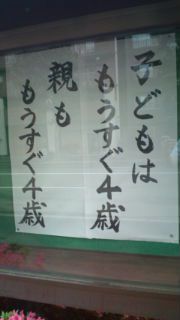 子どもは
もうすぐ4歳
親も
もうすぐ4歳